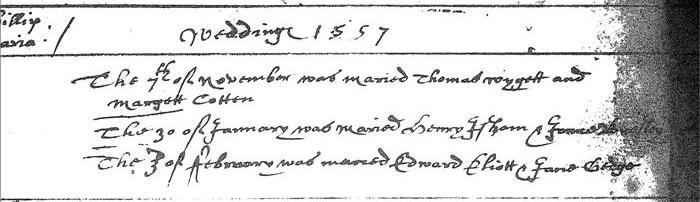 Phillip
Maria: /
Weddings 1557
The 7th of November was maried Thomas wygett and
Margett Cotten
The 30 of January was maried Henry Isham & Jane
The 3 of February was maried Edward Eliott & Jane Gedge